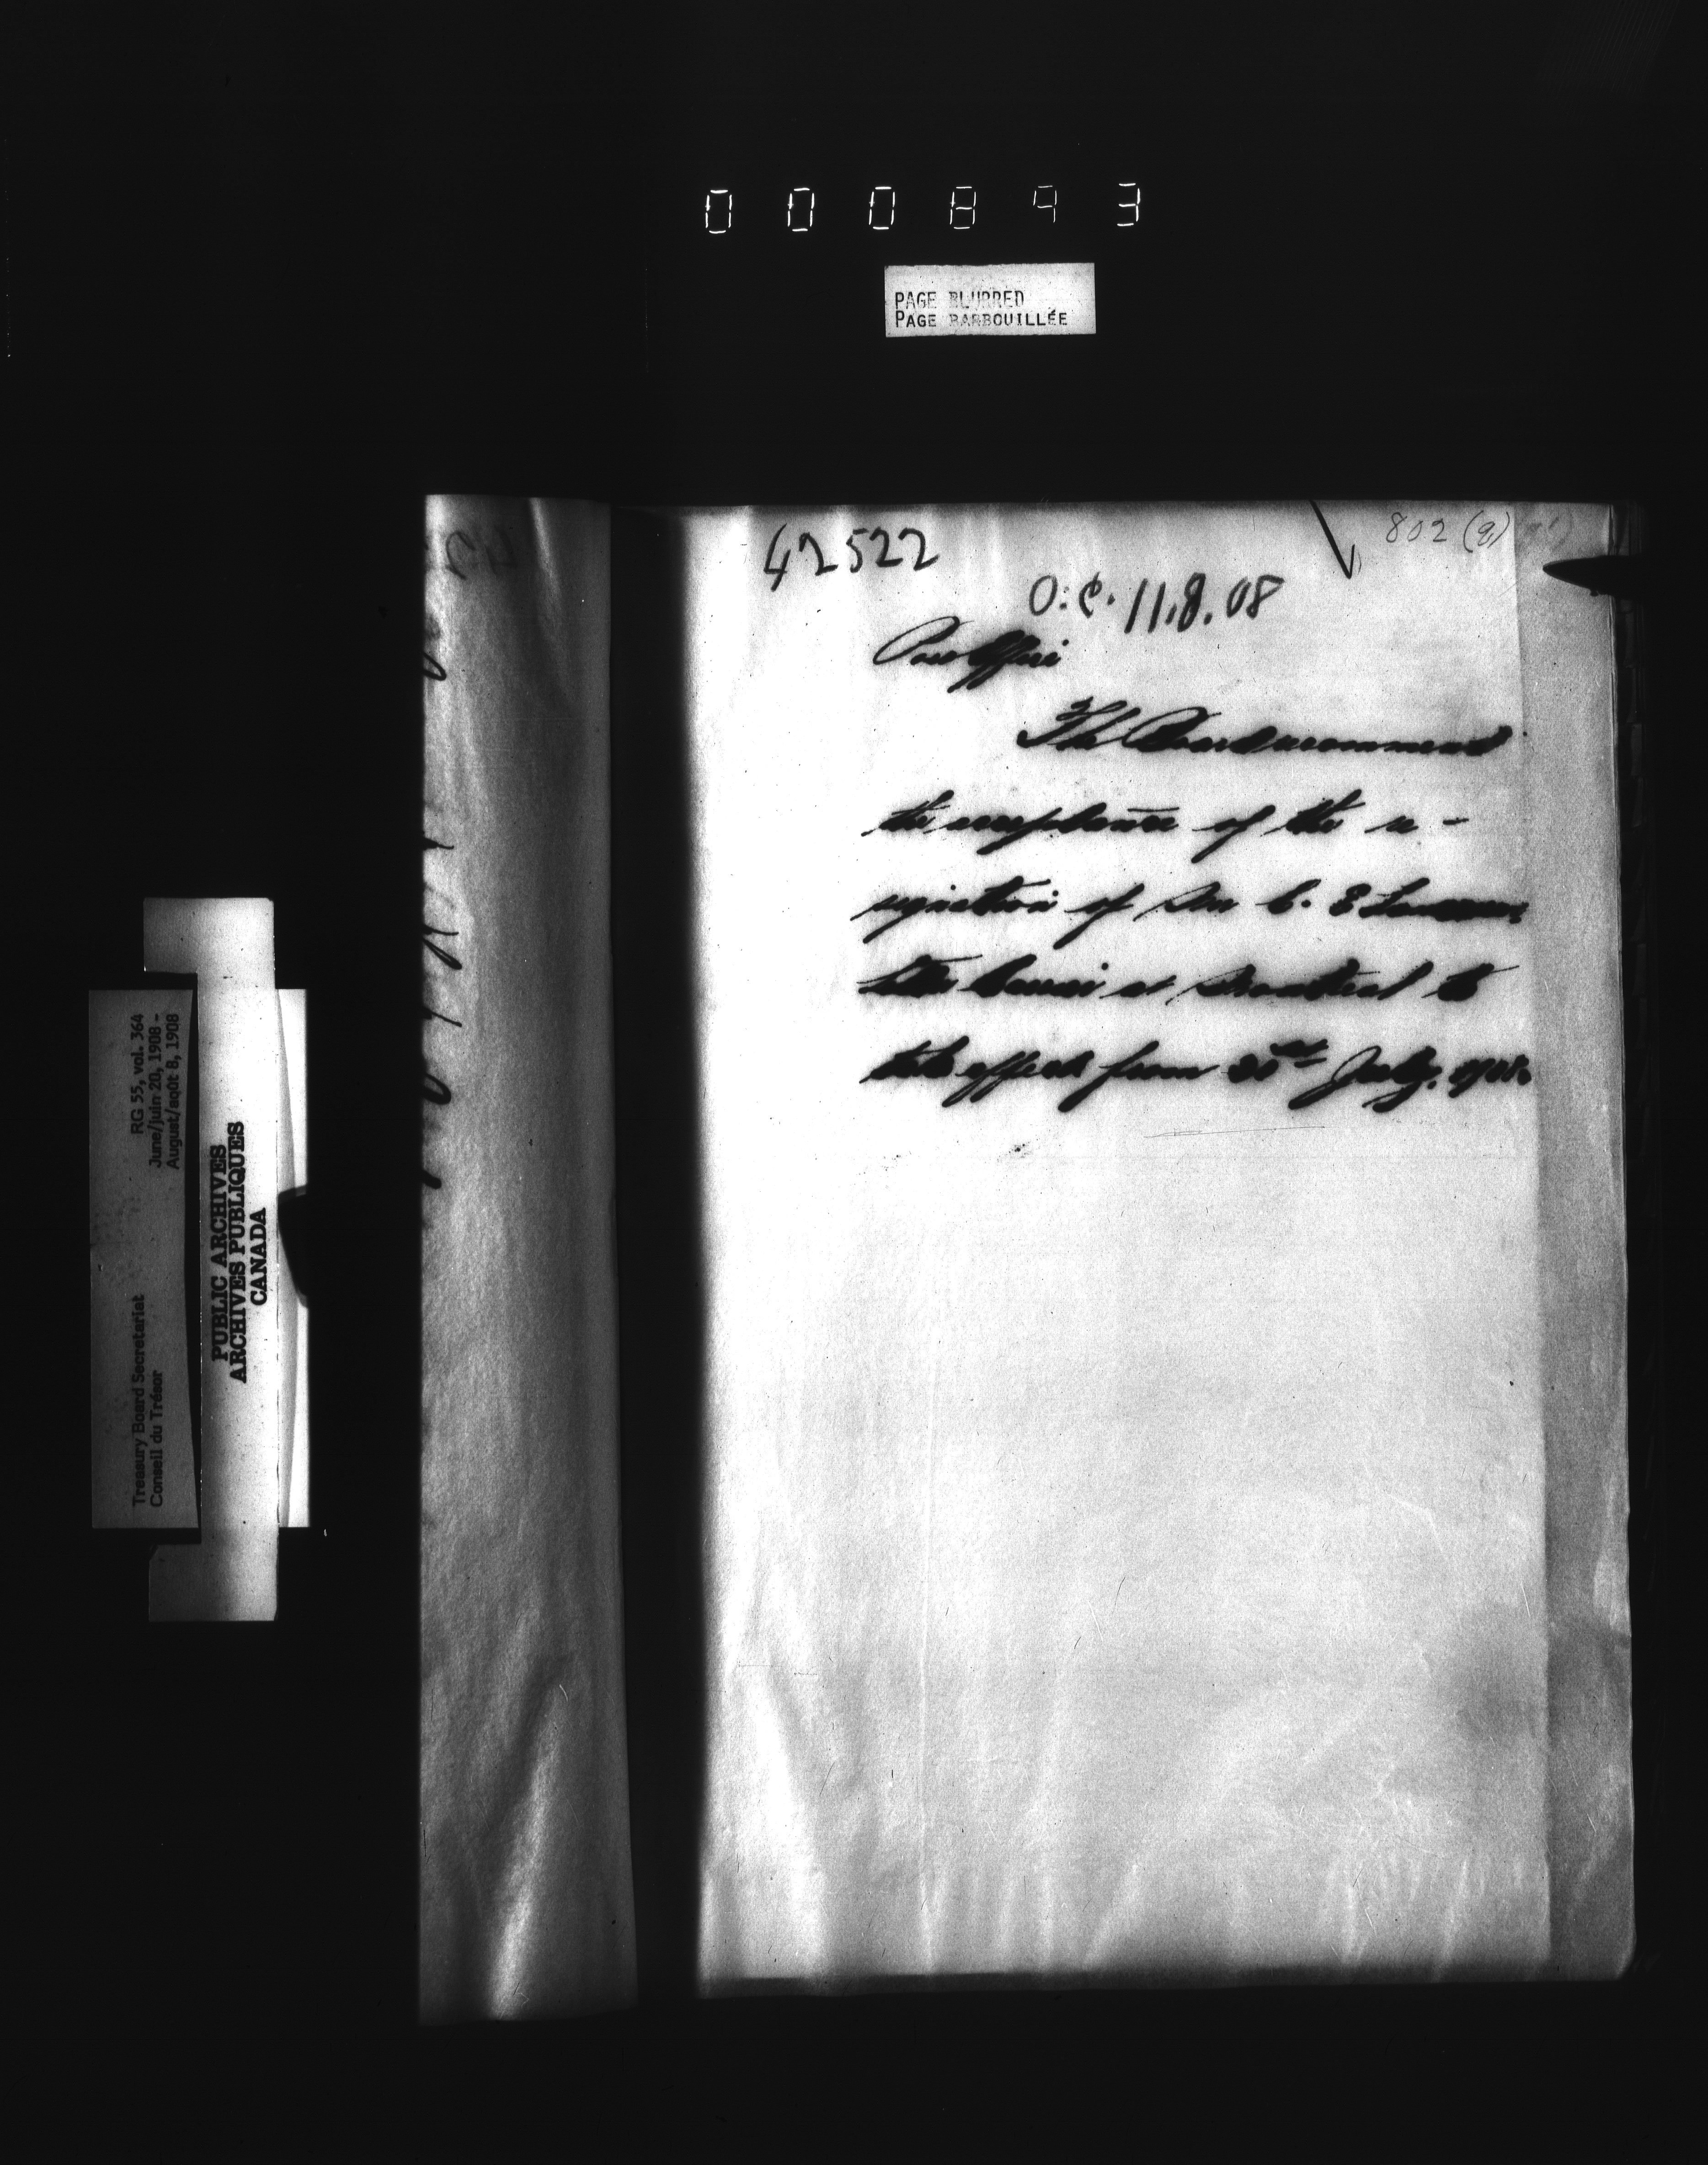 000893
PAGE BLURRED
PAGE BARBOUILLÉE
42522
802 (q)
O.C. 11.8.08
Post Office
The Board recommend
the acceptance of the re-
signation of Mr C. E
letter Carrier at Montreal to
take effect from 20th July, 1908.
RG 55, vol. 364
June/juin 20, 1908 -
August/août 8, 1908
Treasury Board Secretariat
Conseil du Trésor
PUBLIC ARCHIVES
ARCHIVES PUBLIQUES
CANADA